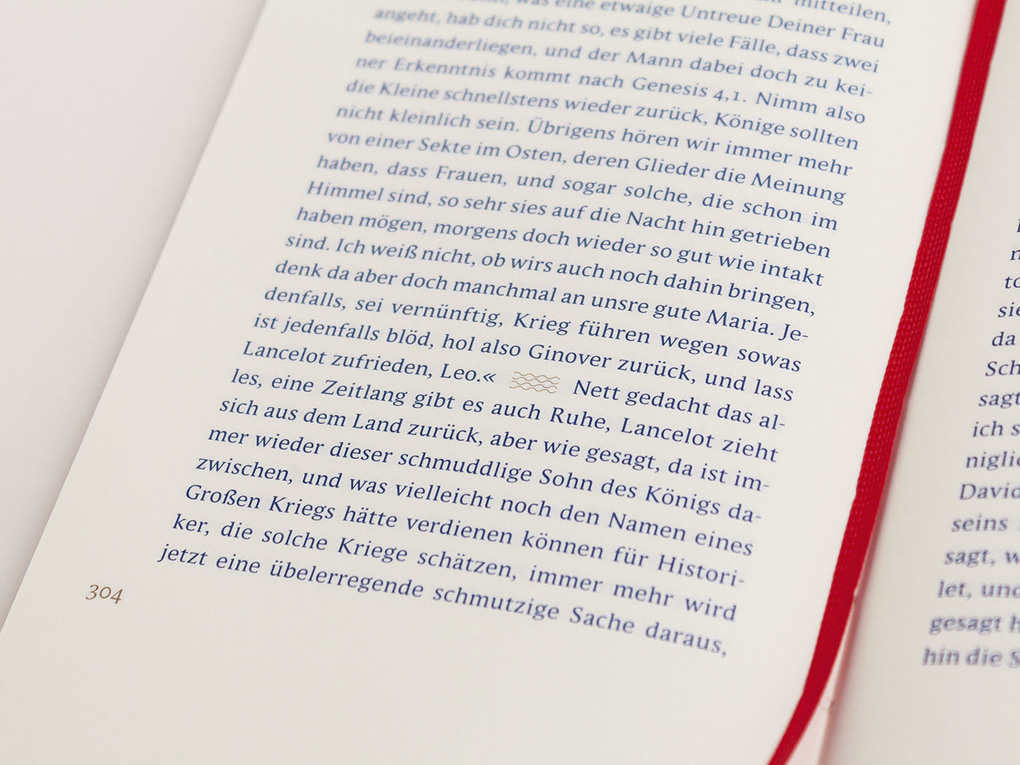 was eine etwaige Untreue Deiner Frau mitteilen,
angeht, hab dich nicht so, es gibt viele Fälle, dass zwei
beieinanderliegen, und der Mann dabei doch zu kei-
ner Erkenntnis kommt nach Genesis 4,1. Nimm also
die Kleine schnellstens wieder zurück, Könige sollten
nicht kleinlich sein. Übrigens hören wir immer mehr
von einer Sekte im Osten, deren Glieder die Meinung
haben, dass Frauen, und sogar solche, die schon im
Himmel sind, so sehr sies auf die Nacht hin getrieben
haben mögen, morgens doch wieder so gut wie intakt
sind. Ich weiß nicht, ob wirs auch noch dahin bringen,
denk da aber doch manchmal an unsre gute Maria. Je-
denfalls, sei vernünftig, Krieg führen wegen sowas
ist jedenfalls blöd, hol also Ginover zurück, und lass
Lancelot zufrieden, Leo.« Nett gedacht das al-
les, eine Zeitlang gibt es auch Ruhe, Lancelot zieht
sich aus dem Land zurück, aber wie gesagt, da ist im-
mer wieder dieser schmuddlige Sohn des Königs da-
zwischen, und was vielleicht noch den Namen eines
Großen Kriegs hätte verdienen können für Histori-
ker, die solche Kriege schätzen, immer mehr wird
jetzt eine übelerregende schmutzige Sache daraus,
304
sie
da
Sch
sagt
ich s
niglic
David
seins
sagt, w
let, und
gesagt h
hin die S